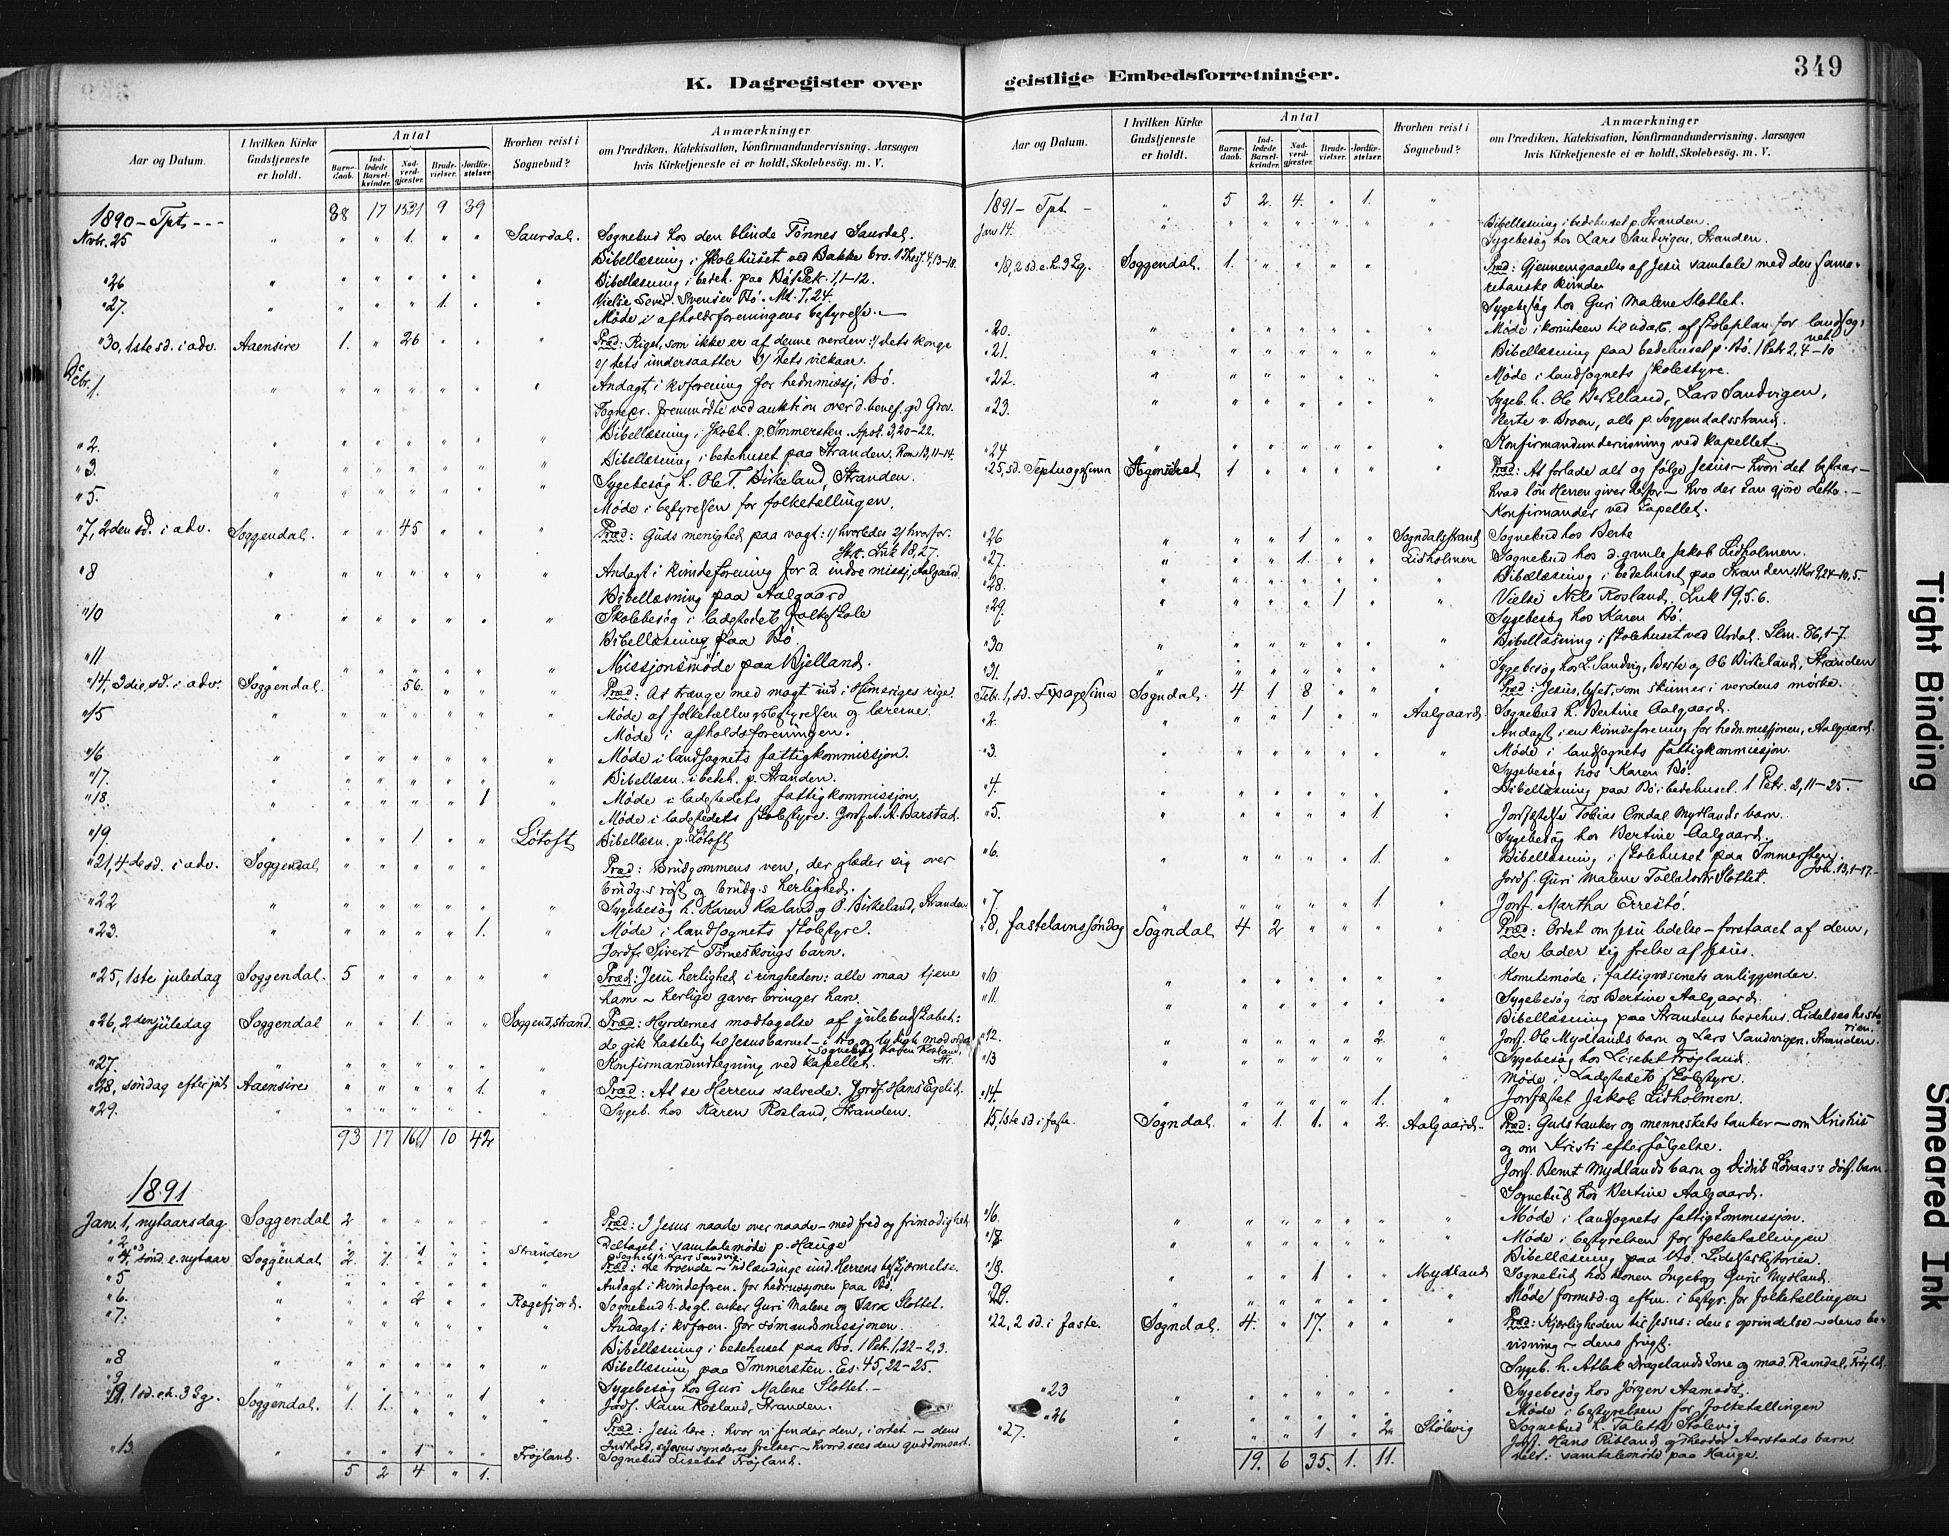 K. Dagregister over
Aar og Datum.
I hvilken Kirke Gudstjeneste er holdt.
Antal
Barnedaab.
Indledede Barselkvinder.
Nadverdgjester.
Brudevielser.
Jordfæstelser.
Hvorhen reist i Sognebud?
Anmærkninger
om Prædiken, Katekisation, Konfirmandundervisning. Aarsagen
hvis Kirketjeneste ei er holdt, Skolebesøg. m. V.
1890 - Tpt. - - - 88 17 1531 9 39
Novbr. 25 " " " 1. " " Saurdal. Sognebud hos den blinde Tønnes Saurdal.
Bibellæsning i skolehuset ved Bakke bro. 1 Thess. 4,13-18.
"26 Bibellæsning i bedeh. paa Bø 1 Petr. 1,1-12.
"27. " " " " 1. " Vielse Sevrd. Svensen Bø. Mt. 7,24.
Møde i afholdsforeningens bestyrelse.
"30, 1ste sd. i adv. Aaensire 1. " 26 " " " Præd: Riget, som ikke er af denne verden: 1/ dets konge
2/ dets undersaatter 3/ dets vilkaar.
Dcbr. 1. Andagt i kvforening for hednmissj. Bø.
Sognepr. fremmødte ved auktion over d. benef. gd Grov.
Bibellæsning i skoleh. p. Immersten. Apok. 3,20-22.
"2. Bibellæsning i bedehuset paa Stranden. Rom 13,11-14.
"3. Sygebesøg h. Ole T. Birkeland, Stranden.
"5. Møde i bestyrelsen for folketællingen.
"7, 2den sd. i adv. Soggendal. " " 45 " " " Præd: Guds menighed paa vagt: 1/ hvorledes 2/ hvorfor.
Skt. Luk 18,27.
"8 Andagt i kvindeforening for d. indre missj, Aalgaard.
Bibellæsning paa Aalgaard
"10 Skolebesøg i ladestedets folkeskole
Bibellæsning paa Bø.
"11 Missjonsmøde paa Bjelland.
"14, 3die sd. i adv. Soggendal. 56. Præd: At trænge med magt ind i Himeriges rige.
"15 Møde af folketællingsbestyrelsen og lærerne.
Møde i afholdsforeningen.
"16 Møde i landsognets fattigkommissjon.
"17. Bibellæsn. i bedeh. p. Stranden.
"18. " " " " 1 " Møde i ladestedets fattigkommissjon
Møde i ladestedets skolestyre. Jordf. A. A. Barstad.
"19. " " " 1 " " Løtoft Bibellæsn. p. Løtoft
"21, 4de sd. i adv. Soggendal Præd: Brudgommens ven, der glæder sig over
brudg.s røst og brudg.s herlighed.
"22 Sygebesøg h. Karen Rosland og O. Birkeland, Stranden
"23. " " " " 1. " Møde i landsognets skolestyre.
Jordf. Sivert Torneskougs barn.
"25, 1ste juledag Soggendal. 5 " " " " " Præd: Jesu herlighed i ringheden: alle maa tjene
ham - herlige gaver bringer han.
"26, 2den juledag Soggendal " " 1. " " Soggend.strand. Præd: Hyrdernes modtagelse af julebudskabet:
de gik hastelig til Jesusbarnet - i tro og lydigh. mod ordet
Sognebud Karen Rosland, Str.
"27. Konfirmandindtegning ved kapellet.
"28, søndag efter jul Aaensire " " " " 1. " Præd: At se Herrens salvede. Jordf. Hans Egelid.
"29. Sygeb. hos Karen Rosland, Stranden.
93 17 1661 10 42
1891
Jan. 1, nytaarsdag. Soggendal 2 Præd: I Jesus naade over naade - med fred og frimodighed
"2. Deltaget i samtalemøde p. Hauge
"3 1 Stranden Sognebd h. Lars Sandvig.
"4, sønd. e. nytaar Soggendal 2. 1. Præd: De troende - udlændinge und. Herrens beskjærmelse.
"5 Andagt i kvindeforen. for hedmissjonen paa Bø.
"6. " " 2 " " Rægefjord. Sognebud h. dagl. enker Guri Malene og Sara Slottet.
"7. Andagt i kvforen. for sømandsmissjonen.
Bibellæsning i bedehuset paa Bø. 1 Petr. 1,22-2,3.
"8 Bibellæsning paa Immersten. Es. 45,22-25.
"9 Sygebesøg hos Guri Malene Slottet. -
"11. 1 sd. e. h. 3 Kg. Soggendal. 1. 1. " " 1 Jordf. Karen Rosland, Stranden.
Præd: Jesu lære: hvor vi finder den, i ordet - dens
indhold, Jesus synderes frelser - hvord. sees den guddomsart.
"13. " " 1 " " Frøyland. Sognebud Lisebet Frøyland.
5 2 4 " 1.
geistlige Embedsforretninger.
349
Aar og Datum.
I hvilken Kirke Gudstjeneste er holdt.
Antal
Barnedaab.
Indledede Barselkvinder.
Nadverdgjester.
Brudevielser.
Jordfæstelser.
Hvorhen reist i Sognebud?
Anmærkninger
om Prædiken, Katekisation, Konfirmandundervisning. Aarsagen
hvis Kirketjeneste ei er holdt, Skolebesøg. m. V.
1891 - Tpt - " 5 2. 4. " 1. "
Jan 14. Bibellæsning i bedehuset p. Stranden.
Sygebesøg hos Lars Sandvigen, Stranden.
"18, 2 sd. e. h. 3 Kg. Soggendal. 1. " " " " " Præd: Gjennemgaaelse af Jesu samtale med den sama-
ritanske kvinde
Sygebesøg hos Guri Malene Slottet.
"20. Møde i komiteen til udarb. af skoleplan for landsog-
net.
"21. Bibellæsning paa bedehuset p. Bø. 1 Petr 2,4-10
"22. Møde i landsognets skolestyre.
"23. Sygeb. h. Ole Birkeland, Lars Sandvigen,
Berte v. Broen, alle p. Soggendalsstrand.
"24 Konfirmandunderivning ved kapellet.
"25, sd. Septuagesima Aagensiret 1 " " " " " Præd: At forlade alt og følge Jesus - hvori det bestaar -
hvad løn Herren giver derfor - hvo der kan gjøre dette. -
Konfirmander ved kapellet.
"26 " " 1 " " Sogndalsstrand Sognebud hos Berte
"27. " " 1. " " Lidholmen Sognebud hos d. gamle Jakob Lidholmen.
"28. Bibellæsning i bedehuset paa Stranden 1 Kor 9,24-10,5.
"29. " " " 1 " " Vielse Nils Rosland. Luk 19,5.6.
Sygebesøg hos Karen Bø.
"30 Bibellæsning i skolehuset ved Urdal. Slm. 86,1-7.
"31. Sygebesøg hos L. Sandvig, Berte og Ole Birkeland, Stranden
Febr. 1, sd. Sexagesima Sogndal. 4 1 8 " " " Præd: Jesus, lyset, som skinner i verdens mørke.
"2. " " 1 " " Aalgaard. Sognebud h. Bertine Aalgaard.
Andagt i en kvindeforening for hednmissjonen, Aalgaard.
"3. Møde i landsognets fattigkommissjon.
Sygebesøg hos Karen Bø.
"4. Bibellæsning paa Bø i bedehuset. 1 Petr. 2,11-25.
"5. " " " " 1. Jordfæstelse Tobias Omdal Mydlands barn.
Sygebesøg hos Bertine Aalgaard.
"6. " " " " 1. Bibellæsning i skolehuset paa Immersten.
Joh. 13,1-17.
Jordf. Guri Malene Tollaksdtr Slottet.
"7. " " " " 1. Jordf. Martha Erresta.
"8, fastelavnssøndag Sogndal 4 2 " " " " Præd: Ordet om Jesu lidelse - forstaaet af dem,
der lader sig frelse af Jesus.
"10 Komitemøde i fattigvæsenets anliggender.
"11. Sygebesøg hos Bertine Aalgaard.
Bibellæsning paa Strandens bedehus. Lidelseshisto-
rien.
"12. " " " " 2. " Jordf. Ole Mydlands barn og Lars Sandvigen, Stranden.
"13 Sygebesøg hos Lisebet Frøyland.
Møde i Ladestedets skolestyre.
"14 " " " " 1. " Jordfæstet Jakob Lidholmen.
15, 1ste sd i faste. Sogndal. " 1. 1. " 2. Aalgaard. Præd: Guds tanker og menneskets tanker - om Kristus
og om Kristi efterfølgelse.
Jordf. Bernt Mydlands barn og Didrik Løvaas's dødf. barn.
Sognebud hos Bertine Aalgaard.
"16. Møde i landsognets fattigkommissjon.
"18 Møde i bestyrelsen for folketællingen
Bibellæsning paa Bø. Lidelseshistorien.
"19. " " 1 " " Mydland Sognebud hos konen Ingeborg Gurie Mydland.
"20. Møde formidd. og efterm. i bestyr. for folketællingen
"22, 2 sd. i faste. Sogndal. 4. " 17. " " " Præd: Kjærligheden til Jesus: dens oprindelse - dens be-
visning - dens frugt.
Sygeb. h. Atlak Dragelands kone og mad. Ravndal, Frøyld.
"23 Sygebesøg hos Jørgen Aamodt.
"26 Møde i bestyrelsen for folketællingen
"27. " " 1 " 2. Stølsvig Sognebud h. Talette Stølsvig
Jordf. Hans Risland og Theodor Aarstads barn.
Delt: samtalemøde paa Hauge.
19. 6 35. 1. 11.
Tight Binding
Smeared Ink